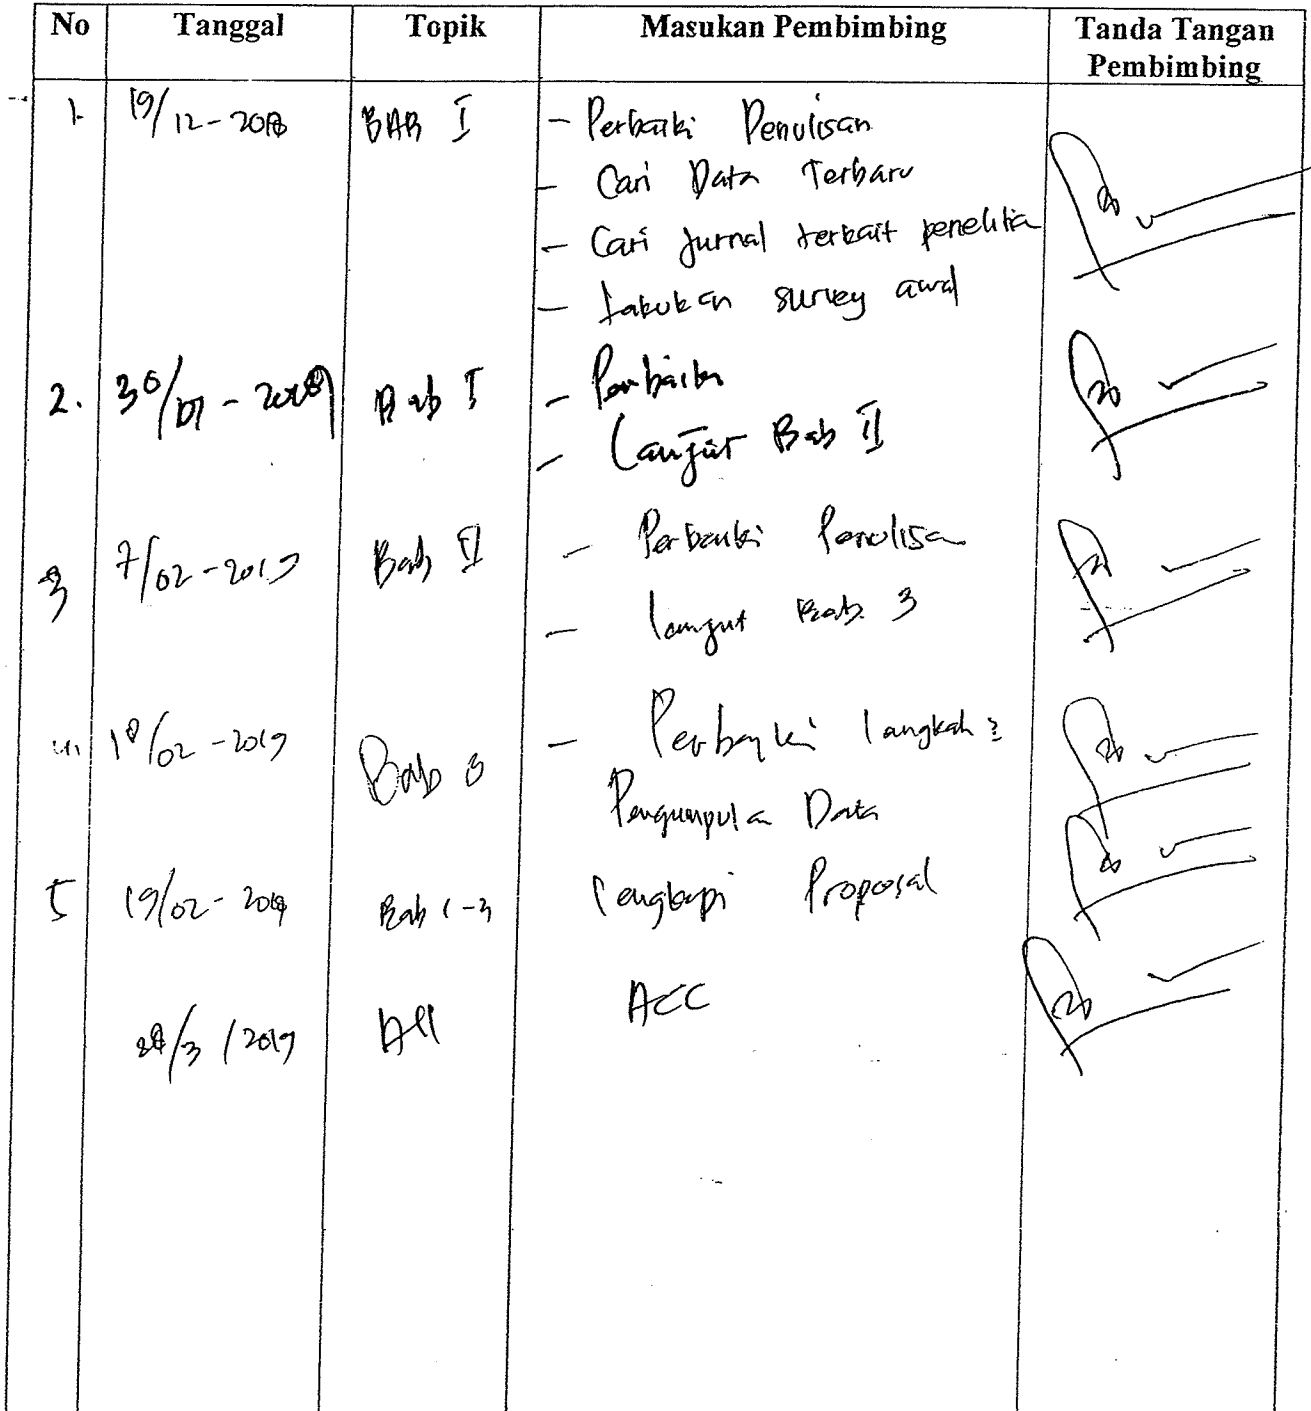 No Tanggal Topik Masukan Pembimbing Tanda Tangan Pembimbing
1. 19/12-2018 BAB I - Perbaiki Penulisan
- Cari Data Terbaru
- Cari Jurnal terkait penelitia
- Lakukan survey awal
2. 30/01-2019 Bab I - Perbaiki
- Lanjut Bab II
3 7/02-2019 Bab II - Perbaiki Penulisa
- lanjut Bab 3
18/02-2019 Bab 3 - Perbayki langkah2
Pengumpulan Data
5 19/02-2019 Bab 1-3 Lengkapi Proposal
/3/2019 All ACC